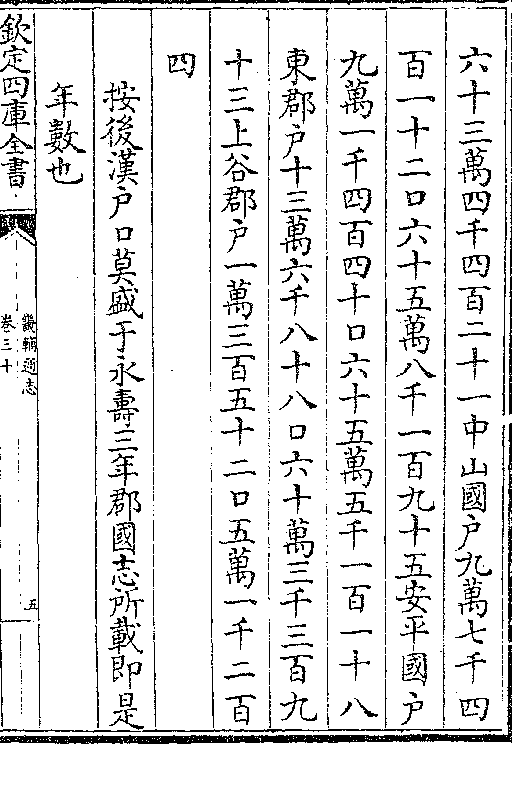 六十三萬四千四百二十一中山國户九萬七千四
百一十二口六十五萬八千一百九十五安平國户
九萬一千四百四十口六十五萬五千一百一十八
東郡户十三萬六千八十八口六十萬三千三百九
十三上谷郡户一萬三百五十二口五萬一千二百
四
按後漢户口莫盛于永壽三年郡國志所載即是
年數也
欽定四庫全書
畿輔通志
卷三十
五